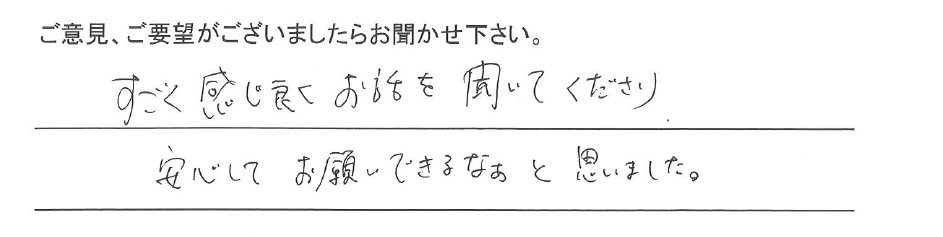 ご意見、ご要望がございましたらお聞かせ下さい。
すごく感じ良くお話を聞いてくださり
安心してお願いできるなぁと思いました。